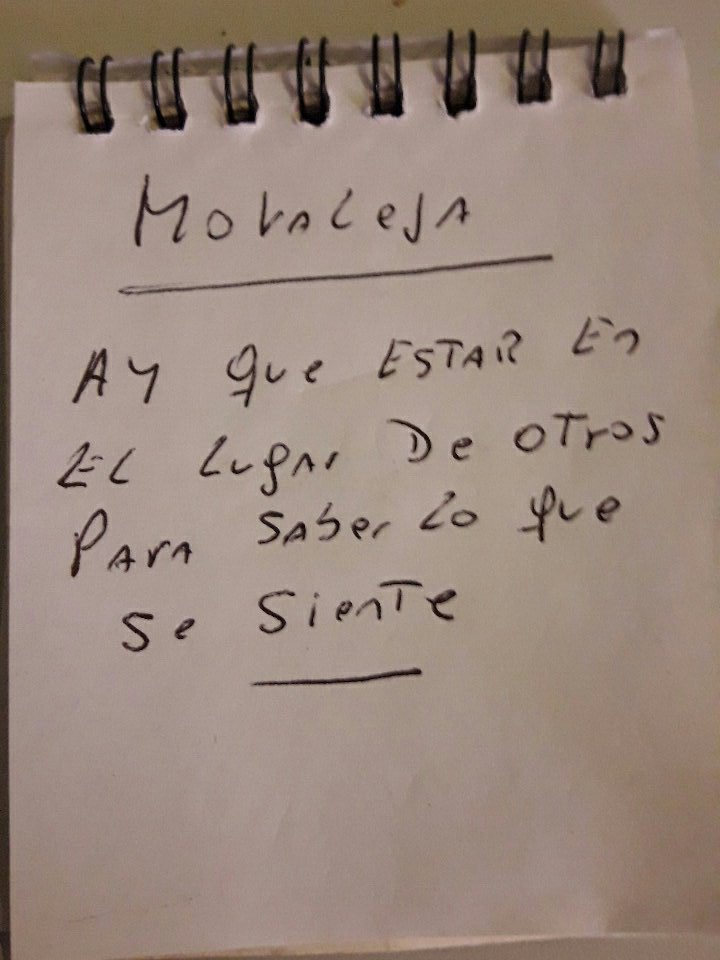 Moraleja
AY que ESTAR En
EL Lugar De OTros
Para Saber Lo que
Se SienTe